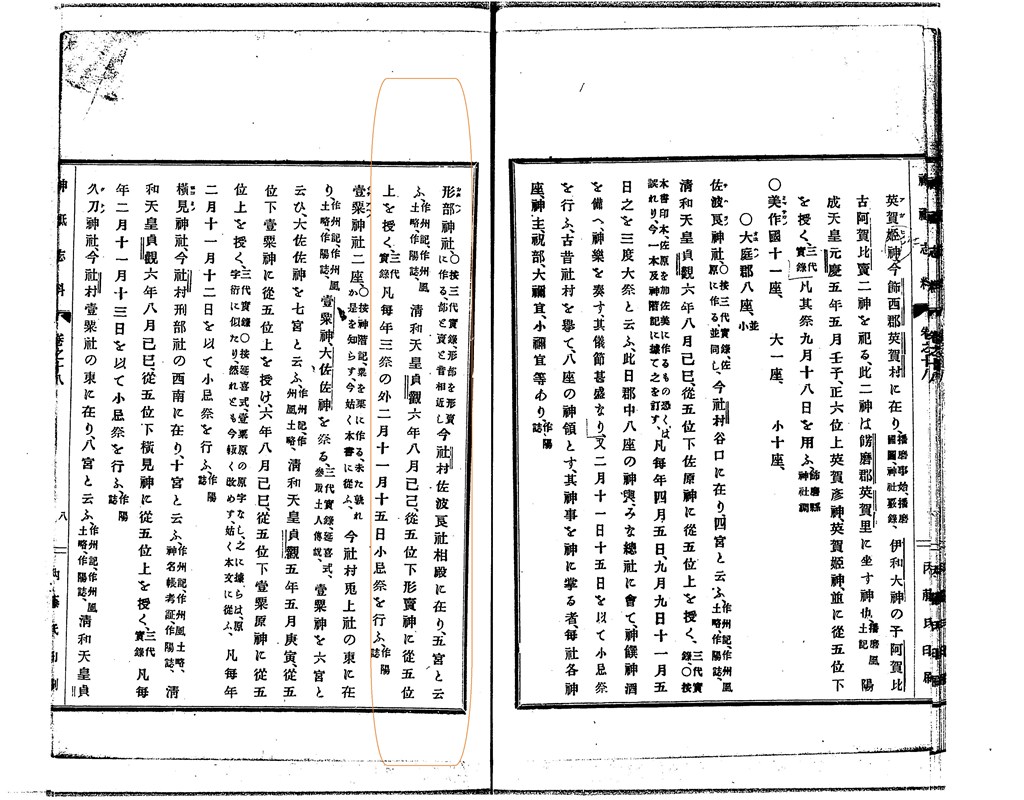 英賀姫神今飾西郡英賀村に在り、播磨事始、播磨國圖神社覈錄、伊和大神の子阿賀比
古阿賀比賣二神を祀る、此二神は餝磨郡英賀里に坐す神也、播磨風土記陽
成天皇元慶五年五月壬子、正六位上英賀彦神、英賀姫神、並に從五位下
を授く、三代實錄凡其祭九月十八日を用ふ、飾磨縣神社調
〇美作國十一座、大一座、小十座、
〇大庭郡八座、並小
佐波良神社、〇按三代實錄、佐原に作る、並同し、今社村谷口に在り、四宮と云ふ、作州記、作州風土略、作陽誌、
清和天皇貞觀六年八月己巳、從五位下佐原神に從五位上を授く、三代實錄〇按
本書印本、佐原を加佐美に作るもの恐くは誤れり、今一本及神階記に據て之を訂す、凡每年四月五日、九月九日十一月五
日之を三度大祭と云ふ、此日郡中八座の神輿、みな總社に會て、神饌神酒
を備へ、神樂を奏す、其儀節甚盛なり、又二月十一日十五日を以て小忌祭
を行ふ、古昔社村を擧て、八座の神領とす、其神事を神に掌る者、每社各神
座、神主、祝部大禰宜、小禰宜等あり、作陽誌
神祇志料 卷之十八
形部神社、〇按三代實錄、形部を形賣に作る、部と賣と音相近し今社村佐波良社相殿に在り、五宮と云
ふ、作州記、作州風土略、作陽誌、清和天皇貞觀六年八月己巳、從五位下形賣神に從五位
上を授く、三代實錄凡每年三祭の外二月十一月十五日小忌祭を行ふ、作陽誌
壹粟神社二座、〇按神階記、粟を栗に作る、未た孰れか是を知らす、今姑く本書に從ふ、今社村兎上社の東に在
り、作州記、作州風土略、作陽誌、壹粟神、大佐佐神を祭る、三代實錄、延喜式、參取土人傳說、壹粟神を六宮と
云ひ、大佐佐神を七宮と云ふ、作州記、作州風土略、清和天皇貞觀五年五月庚寅、從五
位下壹粟神に從五位上を授け、六年八月己巳、從五位下壹粟原神に從五
位上を授く、三代實錄〇按延喜式、壹粟原の原字なし、之に據らは、原字衍に似たり、然れとも今輙く改めす、姑く本文に從ふ、凡每年
二月十一月十二日を以て小忌祭を行ふ、作陽誌
橫見神社、今社村刑部社の西南に在り、十宮と云ふ、作州記、作州風土略、神名帳考証、作陽誌、清
和天皇貞觀六年八月己巳、從五位下橫見神に從五位上を授く、三代實錄凡每
年二月十一月十三日を以て小忌祭を行ふ、作陽誌
久刀神社、今社村壹粟社の東に在り、八宮と云ふ、作州記、作州風土略、作陽誌、清和天皇貞
神祇志料 卷之十八 八